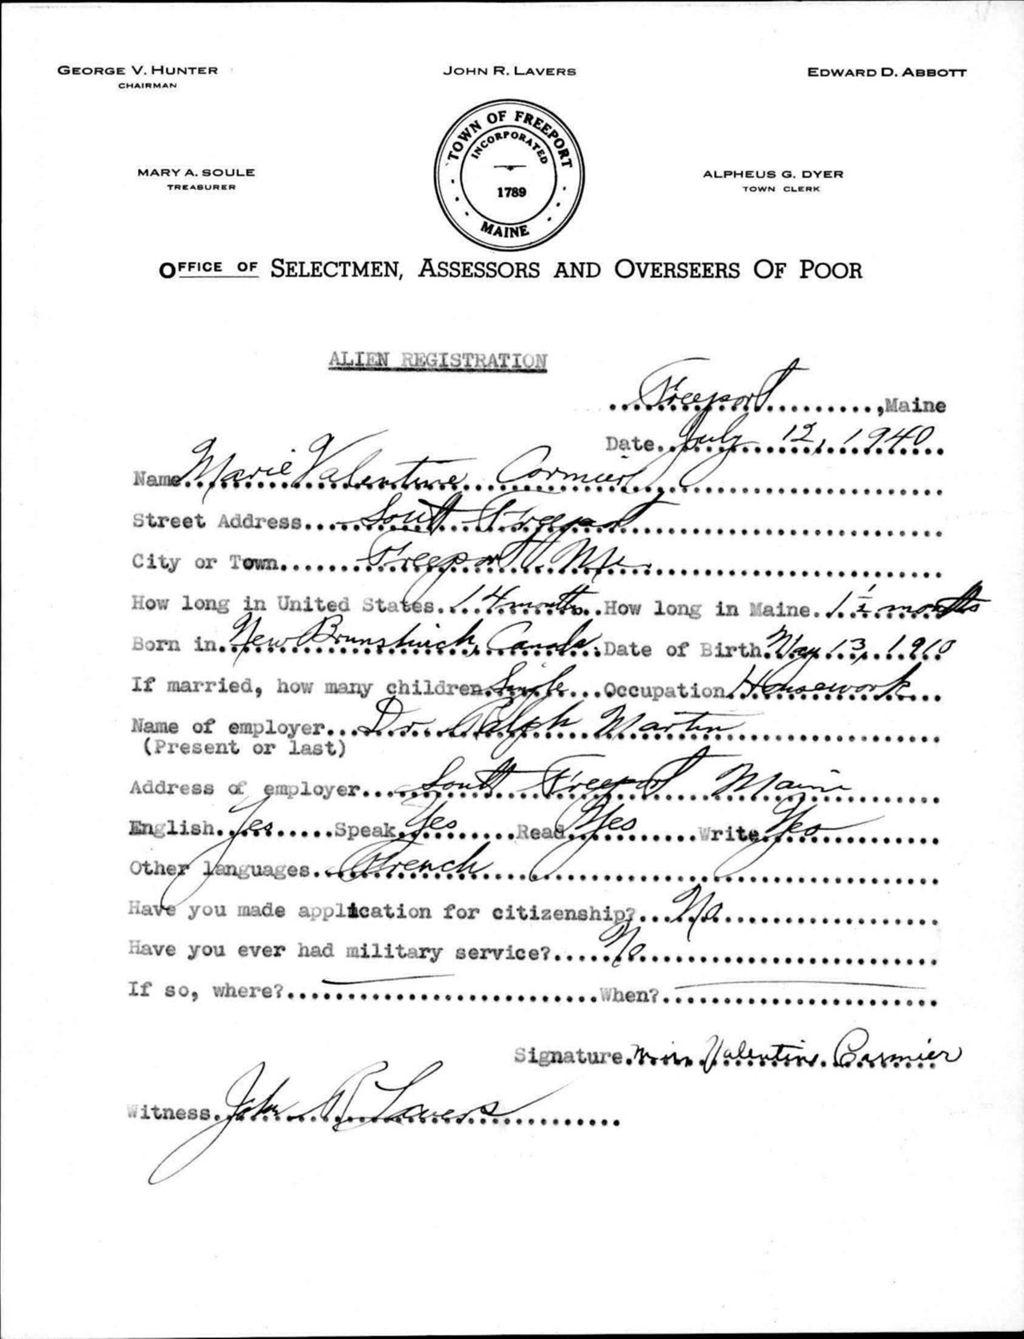 GEORGE V. HUNTER JOHN R. LAVERS EDWARD D. ABBOTT
CHAIRMAN
TOWN OF FREEPORT
INCORPORATED
1789
MAINE
MARY A. SOULE ALPHEUS G. DYER
TREASURER TOWN CLERK
OFFICE OF SELECTMEN, ASSESSORS AND OVERSEERS OF POOR
ALIEN REGISTRATION
Freeport, Maine
Date July 12, 1940
Name Marie Valentine Cormier
Street Address South Freeport
City or Town Freeport Me.
How long in United States 14 months How long in Maine 1 1/2 months
Born in New Brunswick, Canada Date of Birth May 13, 1910
If married, how many children Single Occupation Housework
Name of employer Dr. Ralph Martin
(Present or last)
Address of employer South Freeport Maine
English Yes Speak Yes Read Yes Write Yes
Other languages French
Have you made application for citizenship? No
Have you ever had military service? No
If so, where? When?
Signature Valentine Cormier
Witness John R Lavers